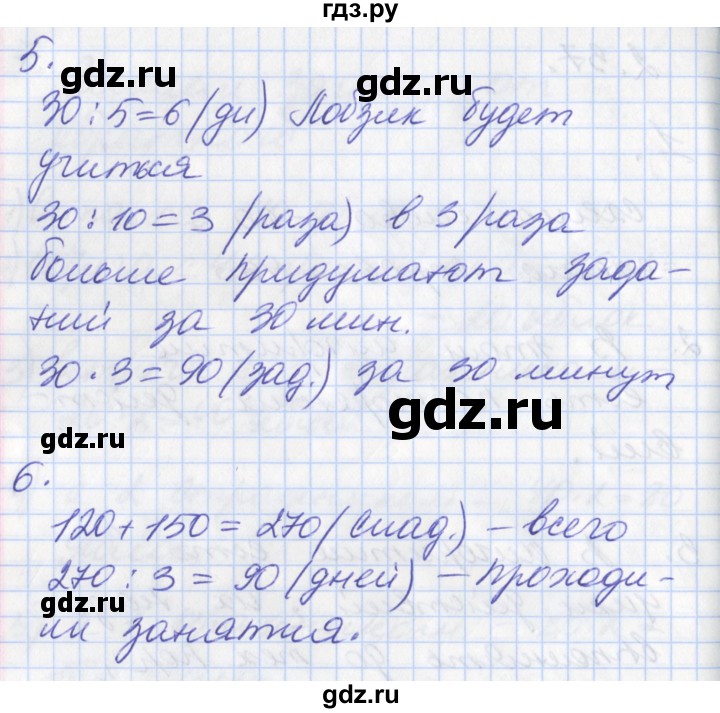 гдз.ру
5.
gdz.ru
gdz.ru
30:5=6(дн) Лобзик будет
учиться
gdz.ru
30:10=3 (раза) в 3 раза
больше придумают зада-
ний за 30 мин.
gdz.ru
30·3=90(зад.) за 30 минут
gdz.ru
gdz.ru
6.
120+150=270(слад.) – всего
270:3=90(дней) – проходи-
gdz.ru
gdz.ru
ли занятия.
gdz.ru